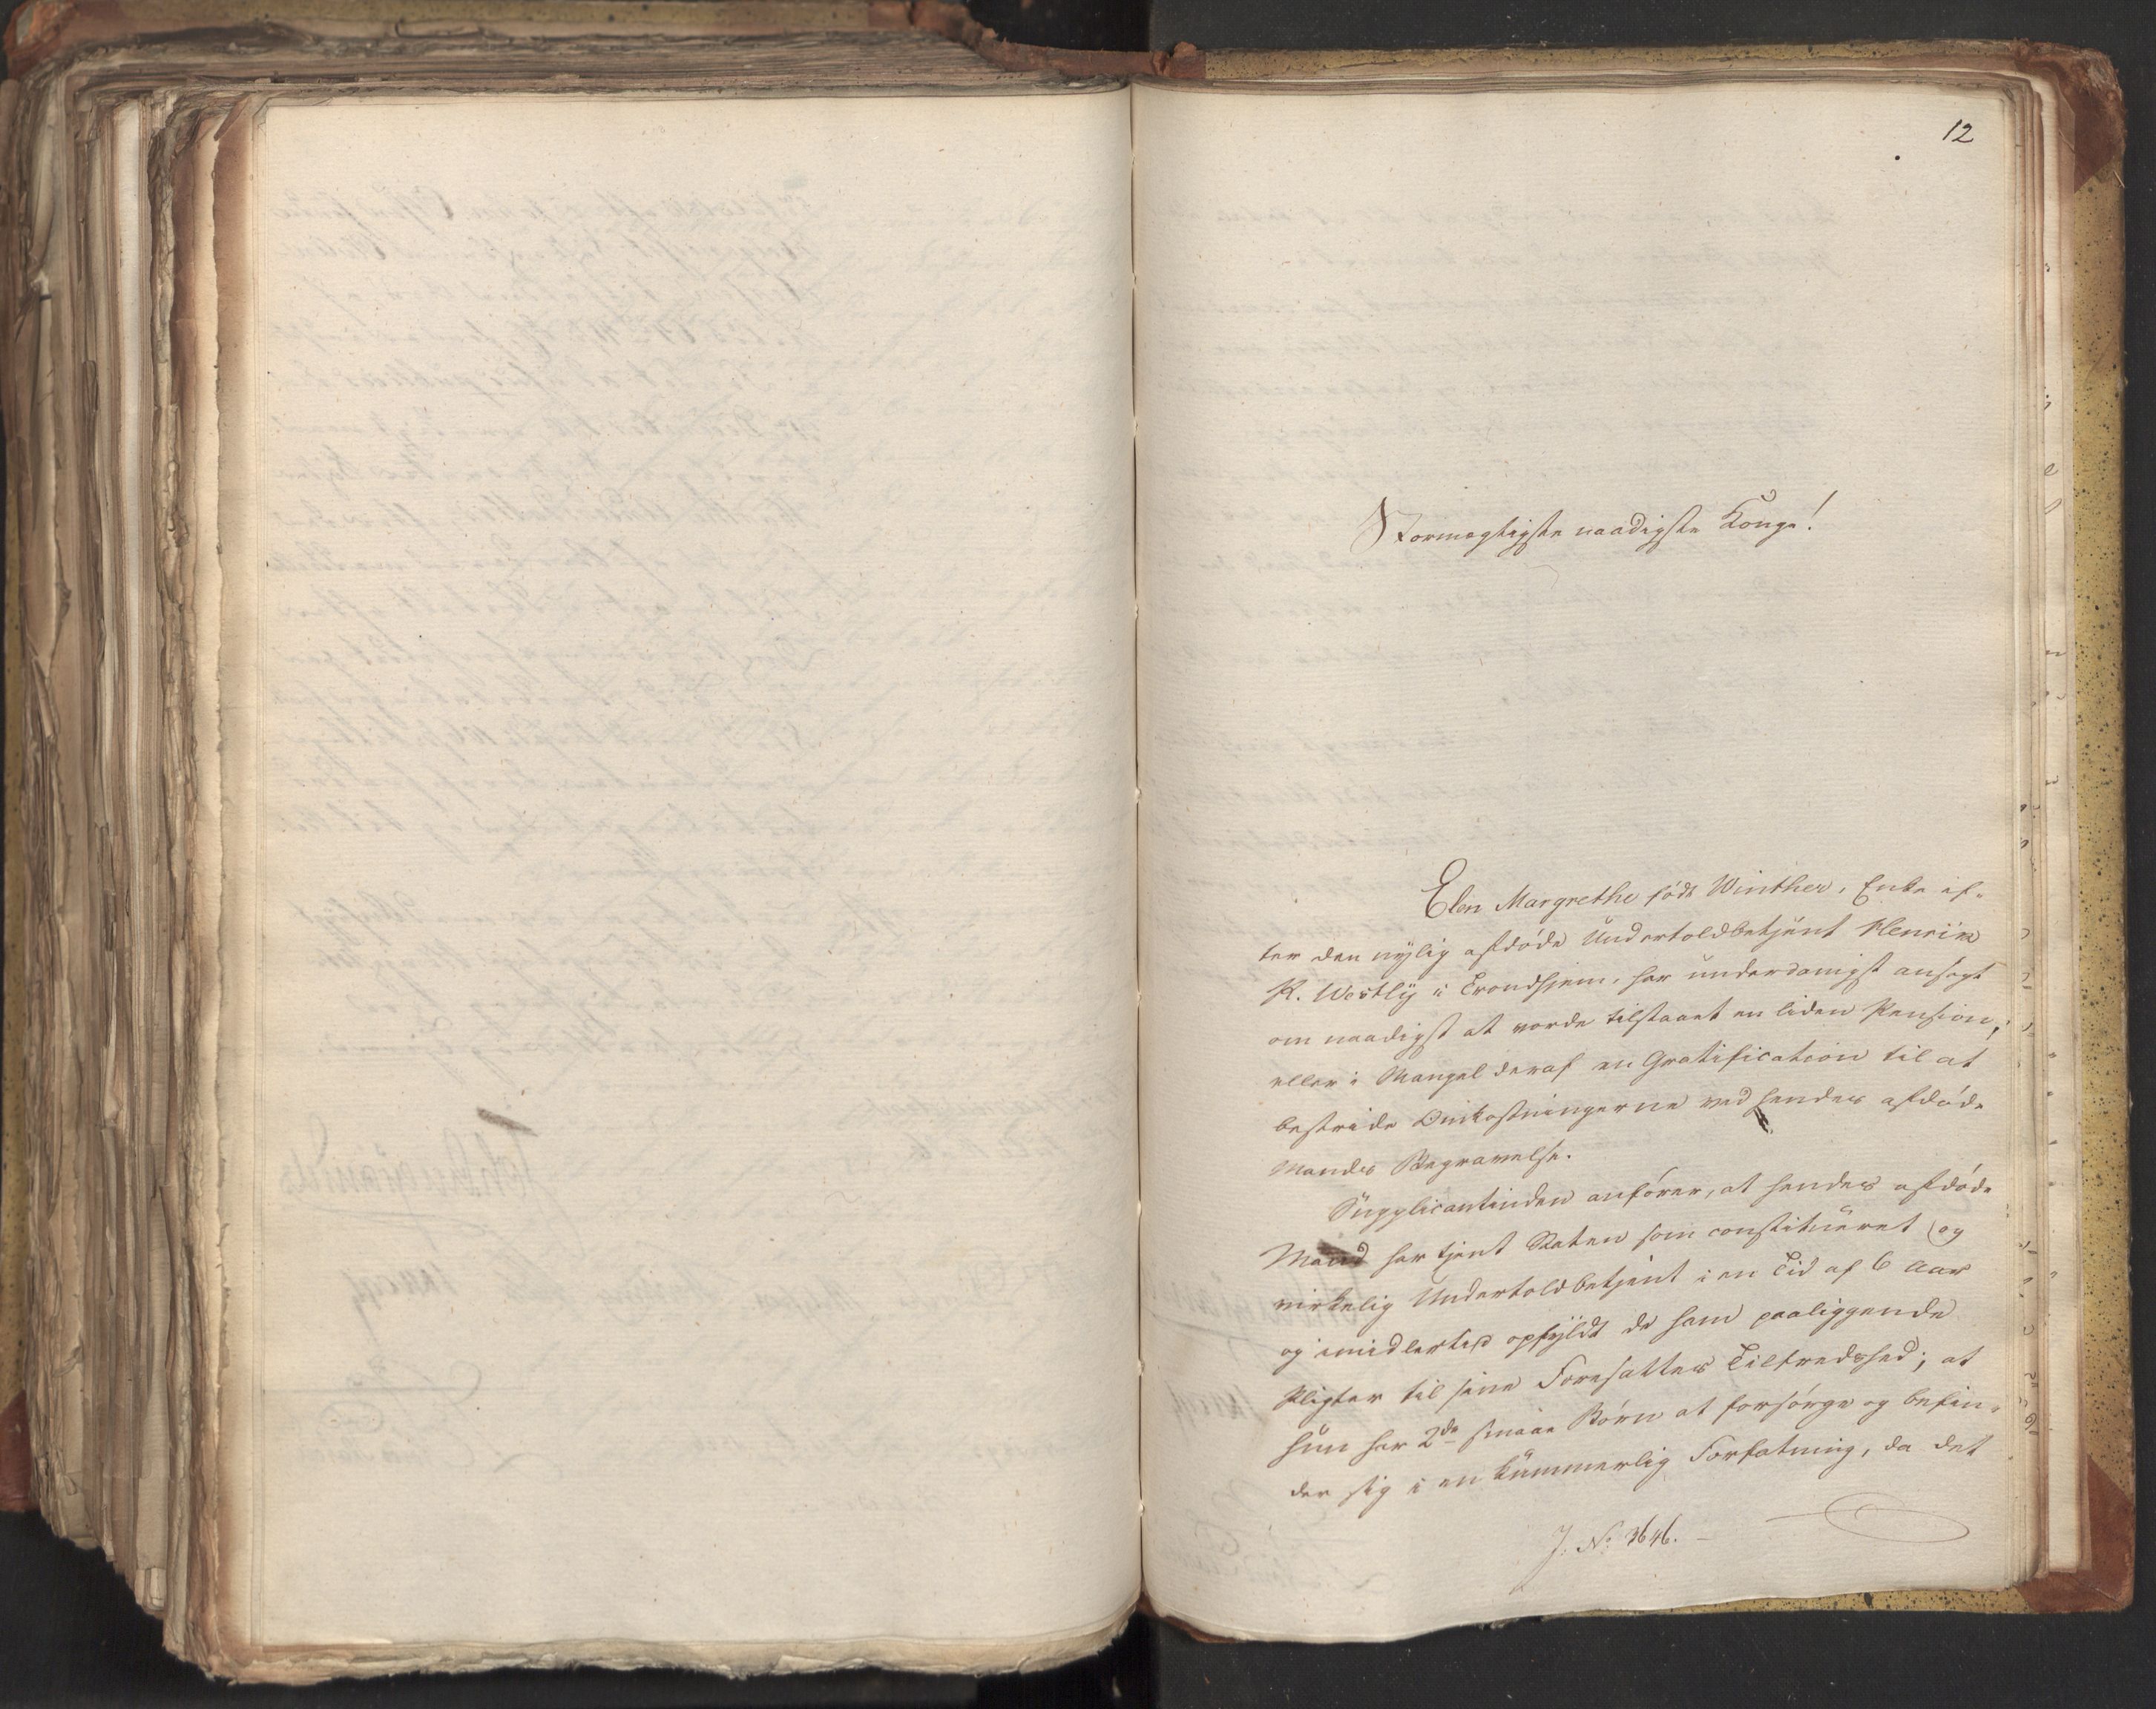 12
Stormægtigste naadigste Konge!
Elen Margrethe født Winther, Enke ef-
ter den nylig afdøde Undertoldbetjent Henrik
K. Westly i Trondhjem, har underdanigst ansøgt
om naadigst at vorde tilstaaet en liden Pension,
eller i Mangel deraf en Gratification til at
bestride Omkostningerne ved hendes afdøde
Mands Begravelse.
Supplicantinden anfører, at hendes afdøde
Mand har tjent Staten som constitueret og
virkelig Undertoldbetjent i en Tid af 6 Aar
og imidlertid opfyldt de ham paaliggende
Pligter til sine Foresattes Tilfredshed; at
hun har 2de smaae Børn at forsørge og befin-
der sig i en kummerlig Forfatning, da det
J. No 3646.